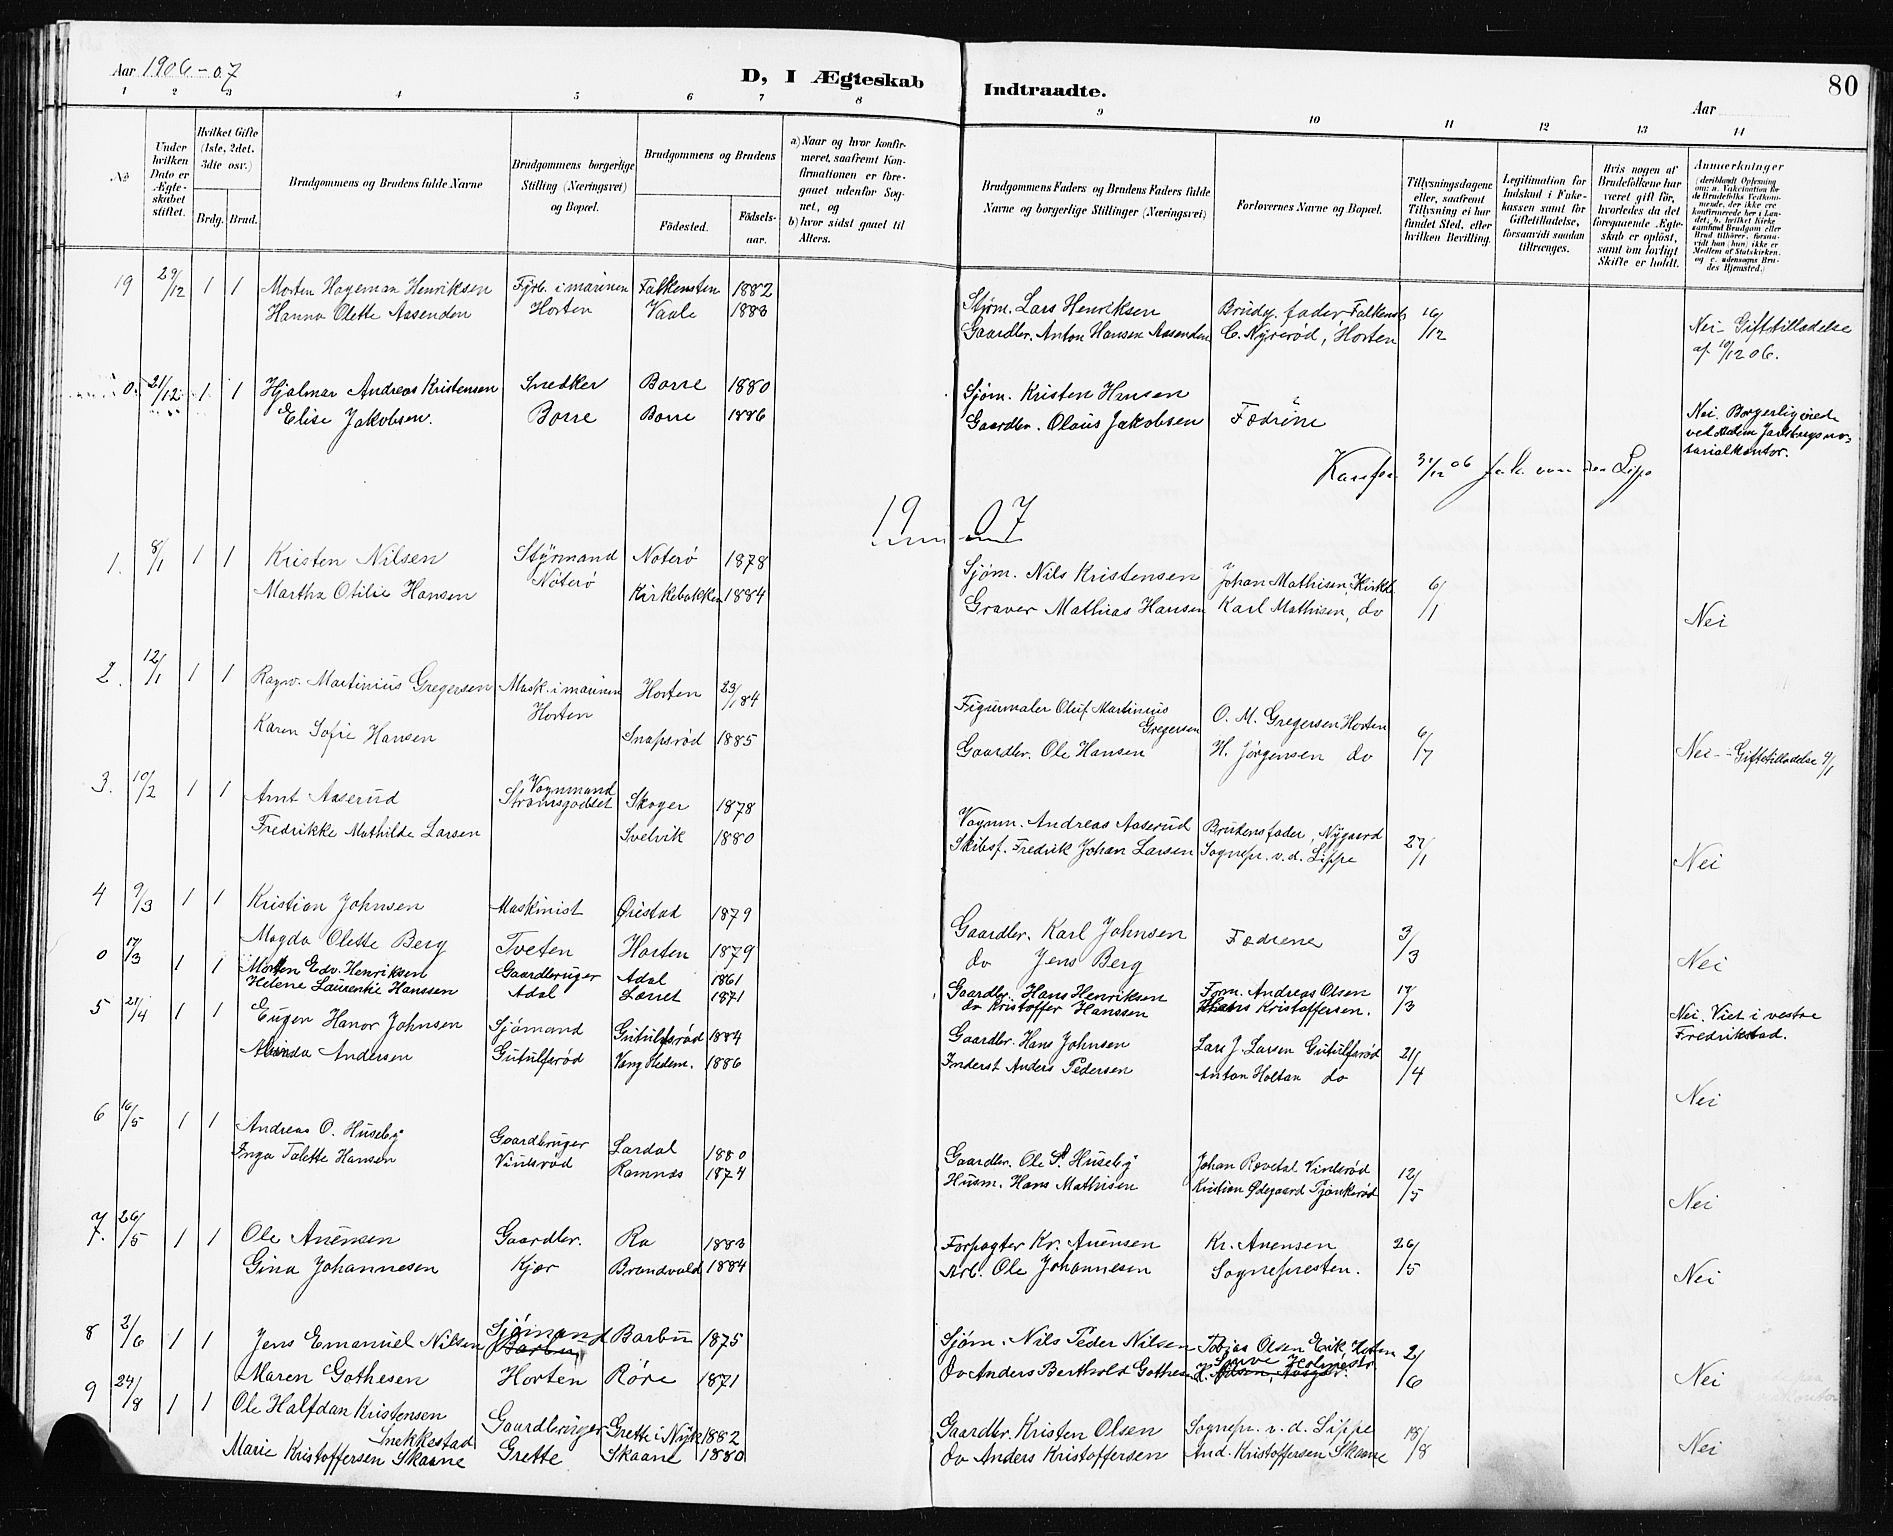 Aar 1906-07
D, I Ægteskab Indtraadte.
80
Aar
1 2 3 4 5 6 7 8 9 10 11 12 13 14
No
Under hvilken Dato er Ægteskabet stiftet.
Hvilket Gifte (1ste, 2det, 3die osv.)
Brdg. Brud.
Brudgommens og Brudens fulde Navne
Brudgommens borgerlige Stilling (Næringsvei) og Bopæl.
Brudgommens og Brudens
Fødested.
Fødselsaar.
a) Naar og hvor konfirmeret, saafremt Konfirmationen er foregaaet udenfor Sognet, og
b) hvor sidst gaaet til Alters.
Brudgommens Faders og Brudens Faders fulde Navne og borgerlige Stillinger (Næringsvei)
Forlovernes Navne og Bopæl.
Tillysningsdagene eller, saafremt Tillysning ei har fundet Sted, efter hvilken Bevilling.
Legitimation for Indskud i Enkekassen samt for Giftetilladelse, forsaavidt saadan tiltrænges.
Hvis nogen af Brudefolkene har været gift før, hvorledes da det foregaaende Ægteskab er opløst, samt om lovligt Skifte er holdt.
Anmærkninger
19 29/12 1 1 Morten Hageman Henriksen Fyrb. i marinen Falkensten 1882 Stjøm. Lars Henriksen Brudg. fader Falkenst. 16/12
Hanna Olette Aasenden Horten Vaale 1883 Gaardbr. Anton Hansen Aasenden C. Nyrerød, Horten
Nei - Giftetilladelse
af 10/12 06.
0. 21/12 1 1 Hjalmar Andreas Kristensen Snedker Borre 1880 Sjøm. Kristen Hansen
Elise Jakobsen. Borre Borre 1886 Gaardbr. Olaus Jakobsen Fædrene
Nei. Borgerlig viet
ved Jarlsbergs no-
tarialkontor.
31/12 06 van der Lippe
1907
1. 8/1 1 1 Kristen Nilsen Styrmand Nøterø 1878 Sjøm. Nils Kristensen Johan Mathisen, Kirkeb. 6/1
Martha Otilie Hansen Nøterø Kirkebakken 1884 Graver Mathias Hansen Karl Mathisen, do Nei
2. 12/1 1 1 Ragnv. Martinius Gregersen Mask. i marinen Horten 23/1 84 Figurmaler Oluf Martinius Gregersen O. M. Gregersen Horten 6/7
Karen Sofie Hansen Horten Snapsrød 1885 Gaardbr. Ole Hansen H. Jørgensen do Nei - Giftetilladelse 4/1
3. 10/2 1 1 Arnt Aaserud Vognmand Strømsgodset Skoger 1878 Vognm. Andreas Aaserud Brudens fader, Nygaard 27/1
Fredrikke Mathilde Larsen Svelvik 1880 Skibsf. Fredrik Johan Larsen Sognepr. v. d. Lippe Nei
4 9/3 1 1 Kristian Johnsen Maskinist Øistad 1879 Gaardbr. Karl Johnsen Fædrene 3/3
Magda Olette Berg Tveten Horten 1879 do Jens Berg Nei
0 17/3 1 1 Morten Edv. Henriksen Gaardbruger Adal 1861 Gaardbr. Hans Henriksen Form. Andreas Olsen 17/3
Helene Laurentie Hanssen Adal 1871 do Kristoffer Hanssen Kristoffersen. Nei. Viet i vestre
Fredrikstad.
5 21/4 1 1 Eugen Hanor Johnsen Sjømand Gutulfsrød 1884 Gaardbr. Hans Johnsen Lars J. Larsen Gutulfsrød 21/4
Andersen Gutulfsrød Vang Hedem. 1886 Inderst Anders Pedersen Anton Holtan do Nei
6 16/5 1 1 Andreas O. Huseby Gaardbruger Lardal 1880 Gaardbr. Ole P. Huseby Johan Rovetal Vinterød 12/5
Inga Talette Hansen Ramnes 1874 Husm. Hans Mathisen Kristian Ødegaard Tjønkerød Nei
7. 26/5 1 1 Ole Auensen Gaardbr. Ra 1883 Forpagter Kr. Auensen Kr. Auensen 26/5
Gina Johannesen Kjær Brandvold 1884 Arb. Ole Johannesen Sognepresten. Nei
8 2/6 1 1 Jens Emanuel Nilsen Sjømand Barbu 1875 Sjøm. Nils Peder Nilsen Tobias Olsen Horten 2/6
Maren Gothesen Horten Røre 1871 do Anders Berthold Gothesen Nei
9 24/8 1 1 Ole Halfdan Kristensen Snekkestad Gaardbruger Grette i Nyk. 1882 Gaardbr. Kristen Olsen Sognepr. v. d. Lippe 18/8
Marie Kristoffersen Skaane Grette Skaane 1880 do Anders Kristoffersen And. Kristoffersen Skaane Nei